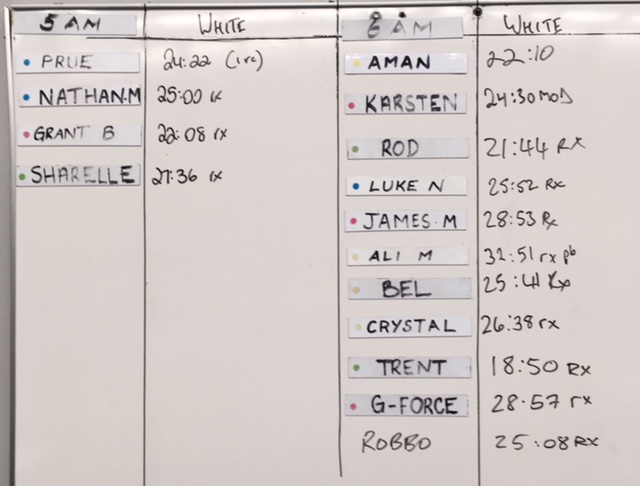 5 AM WHITE
PRUE 24:22 (1rc)
NATHAN.M 25:00 rx
GRANT B 22:08 rx
SHARELLE 27:36 rx
8 AM WHITE
AMAN 22:10
KARSTEN 24:30 MOD
ROD 21:44 RX
LUKE N 25:52 Rx
JAMES.M 28:53 Rx
ALI M 32:51 rx pb
BEL 25:41 Rx
CRYSTAL 26:38 rx
TRENT 18:50 RX
G-FORCE 28:57 rx
ROBBO 25:08 RX